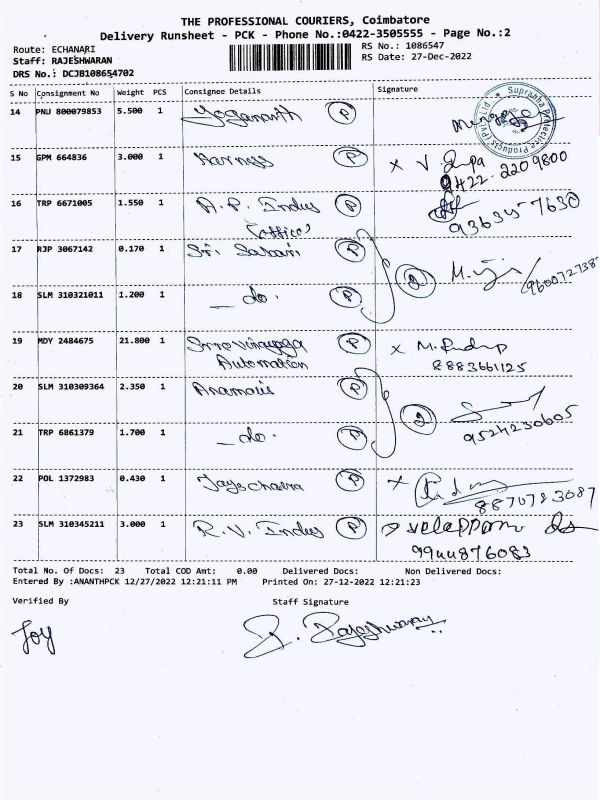 THE PROFESSIONAL COURIERS, Coimbatore
Delivery Runsheet - PCK - Phone No.:0422-3505555 - Page No.:2
Route: ECHANARI
RS No.: 1086547
Staff: RAJESHWARAN
RS Date: 27-Dec-2022
DRS No.: DCJB108654702
S No Consignment No Weight PCS Consignee Details Signature
14 PNU 800079853 5.500 1 Yogananth P
Suprabha Protective Products (Pvt) Ltd
15 GPM 664836 3.000 1 Harness P x V.
9422 2209800
16 TRP 6671005 1.550 1 A.P. Indus P
(office)
17 RJP 3067142 0.170 1 Sri Sarani P 2 M. 9600727387
18 SLM 310321011 1.200 1 - do. P
19 MDY 2484675 21.800 1 Sree Vinayaga P x M.
Automation 8883661125
20 SLM 310309364 2.350 1 P 2
21 TRP 6861379 1.700 1 - do. P 9524230605
22 POL 1372983 0.430 1 P x
8870783087
23 SLM 310345211 3.000 1 R.V. Indus P velappan
9944876083
Total No. Of Docs: 23 Total COD Amt: 0.00 Delivered Docs: Non Delivered Docs:
Entered By :ANANTHPCK 12/27/2022 12:21:11 PM Printed On: 27-12-2022 12:21:23
Verified By Staff Signature
Joy R. Rajeshwaran